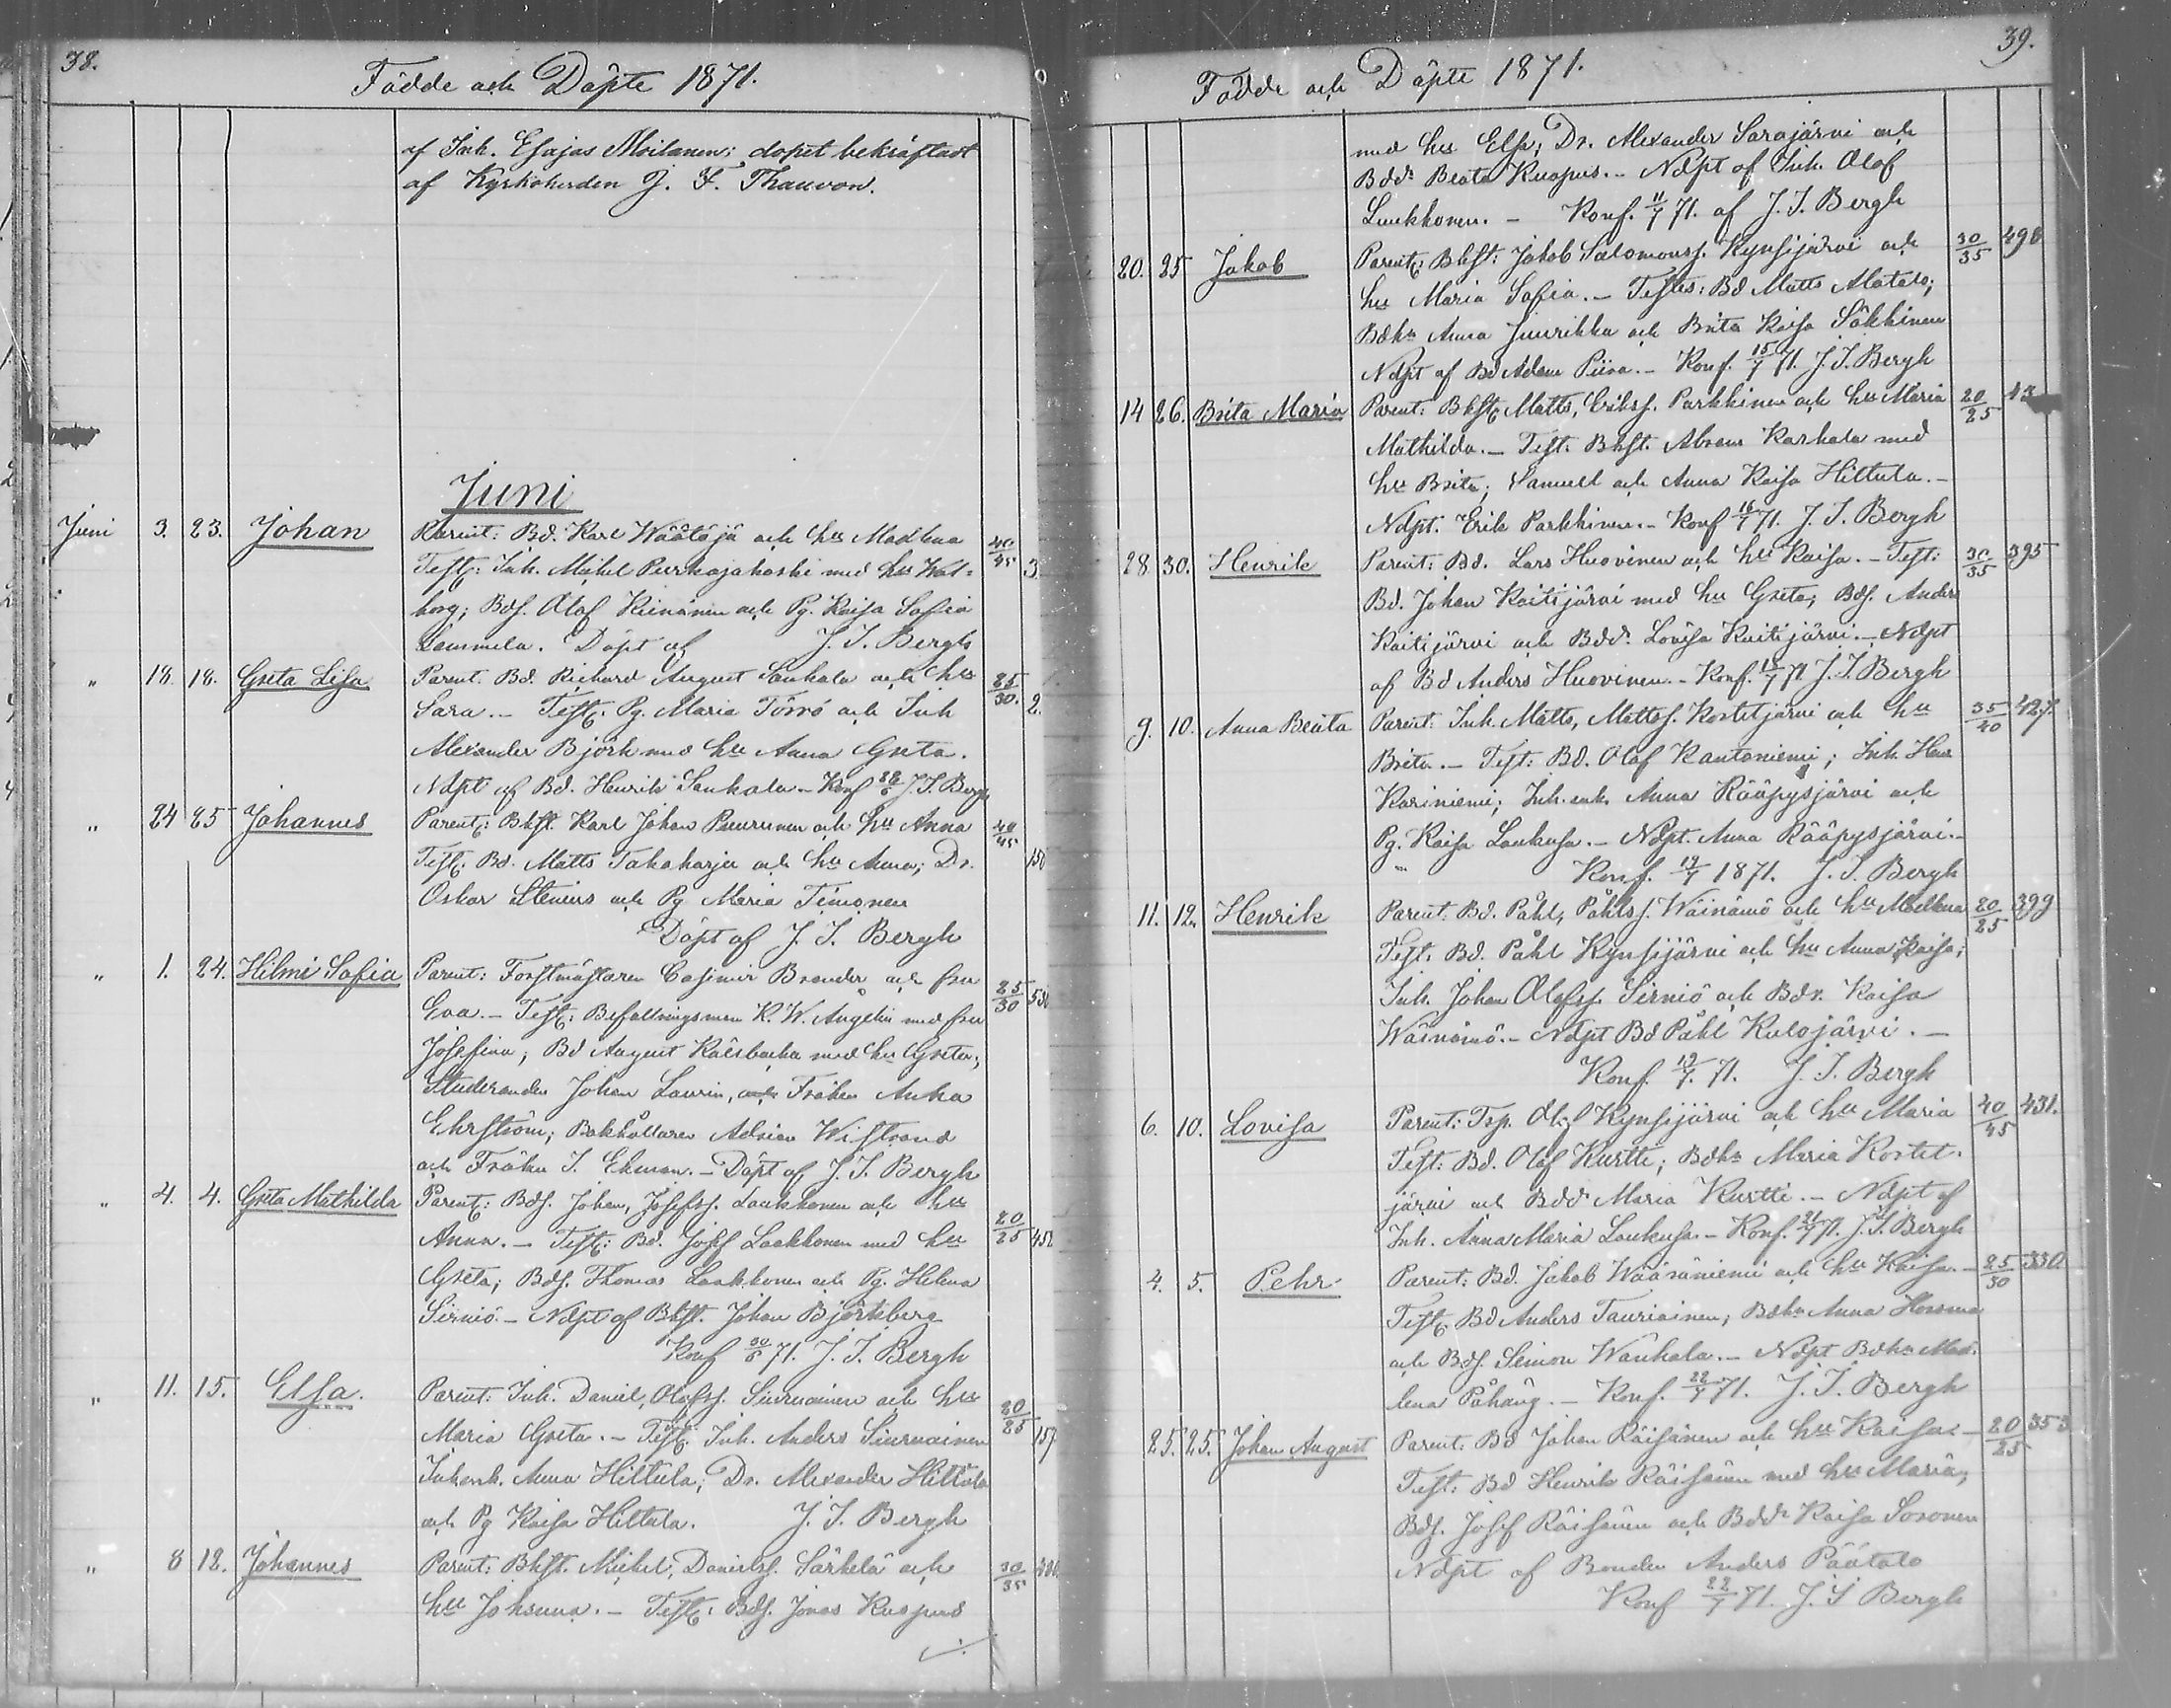 38.
Födde och Döpte 1871.
af Inh. Esajas Moilanen; dopet bekräftadt
af Kyrkoherden J. F. Thauvon.
Juni
Juni 3. 23. Johan Parent: Bd. Karl Väätäjä och hu Madlena 40/45 3
Test: Inh. Mickel Purkajakoski med hu Wal-
borg; Bds. Olof Keinänen och Pg. Kaisa Sofia
Lammela. Döpt af J. I. Bergh
" 18. 18. Greta Lisa Parent. Bd. Richard August Saukala och hu 25/30. 2.
Sara. – Test. Pg. Maria Törrö och Inh
Alexander Björk med hu Anna Greta.
Ndpt af Bd. Henrik Saukala. – Konf J. I. Bergh
" 24 25 Johannes Parent: Bkst. Karl Johan Puurunen och hu Anna 40/45 150
Test. Bd. Matts Takaharju och hu Anna; Dr.
Oskar Stenius och Pg Maria Timonen
Döpt af J. I. Bergh
" 1. 24. Hilmi Sofia Parent: Forstmästaren Casimir Brander och fru 25/30
Eva. – Test: Befallningsman K. W. Angelin med fru
Josefina; Bd August med hu Greta;
Studeranden Johan Laurin, Fröken Anna
Ehrström; Bokhållaren Adrian Wistrand
och Fröken I. Ekman. – Döpt af J. I. Bergh
" 4. 4. Greta Mathilda Parent: Bds. Johan, Josefss. Laukkonen och hu 20/25
Anna. – Test: Bd. Josef Laukkonen med hu
Greta; Bds. Thomas Laukkonen och Pg. Helena
Sirniö. – Ndpt af Bkst. Johan Björkberg
Konf 30/6 71. J. I. Bergh
" 11. 15. Elsa. Parent: Inh. Daniel, Olofss. Siuruainen och hu 20/25 157
Maria Greta. – Test: Inh. Anders Siuruainen
Inhenk. Anna Hiltula; Dr. Alexander Hiltula
och Pg Kaisa Hiltula. J. I. Bergh
" 8 12. Johannes Parent: Bkst. Mickel, Danielss. Särkelä och 30/35
hu Johanna. – Test: Bds. Jonas Kuopus
39.
Födde och Döpte 1871.
med hu Elsa; Dr. Alexander Sarajärvi och
Bdd. Beata Kuopus. – Ndpt af Inh. Olof
Laukkonen. – Konf. 11/7 71. af J. I. Bergh
20. 25 Jakob Parent: Bkst: Jakob Salomonss. Kynsijärvi och 30/35 498
hu Maria Sofia. – Testes: Bd Matts Alatalo;
Bdhu Anna Juurikka och Brita Kaisa Säkkinen
Ndpt af Bd Adam Piira. – Konf. 15/7 71. J. I. Bergh
14 26. Brita Maria Parent: Bkst Matts, Erikss. Parkkinen och hu Maria 20/25 43
Mathilda. – Test. Bkst. Abram Karhala med
hu Brita; Samuel och Anna Kaisa Hiltula. –
Ndpt. Erik Parkkinen. – Konf 16/7 71. J. I. Bergh
28 30. Henrik Parent: Bd. Lars Huovinen och hu Kaisa. – Test: 30/35 395
Bd. Johan Kaitijärvi med hu Greta; Bds. Anders
Kaitijärvi och Bdd. Lovisa Kaitijärvi. – Ndpt
af Bd Anders Huovinen. – Konf. 71 J. I. Bergh
9. 10. Anna Beata Parent: Inh. Matts, Mattss. Kostetjärvi och hu 35/40 427.
Brita. – Test: Bd. Olof Kantoniemi; Inh. Henr
Kariniemi; Inh.enk. Anna Rääpysjärvi och
Pg. Kaisa Laukusa. – Ndpt. Anna Rääpysjärvi. –
Konf. 19/7 1871. J. I. Bergh
11. 12. Henrik Parent. Bd. Påhl, Påhlss. Wäinämö och hu Madlena 20/25 399
Test. Bd. Påhl Kynsijärvi och hu Anna Kaisa;
Inh. Johan Olofss. Sirniö och Bdr. Kaisa
Wäinämö. – Ndpt Bd Påhl Kulojärvi. –
Konf. 19/7. 71. J. I. Bergh
6. 10. Lovisa Parent: Tsp. Olof Kynsijärvi och hu Maria 40/45 431.
Test: Bd. Olof Kurtti; Bdhu Maria Kostet-
järvi och Bdd Maria Kurtti. – Ndpt af
Inh. Anna Maria Laukusa. – Konf. 21/7 71. J. I. Bergh
4. 5. Pehr Parent: Bd. Jakob Wääräniemi och hu Kaisa. – 25/30 330
Test. Bd Anders Tauriainen; Bdhu Anna Horsma
och Bds. Simon Wanhala. – Ndpt Bdhu Mad-
lena . – Konf. 22/7 71. J. I. Bergh
25. 25. Johan August Parent: Bd Johan Räisänen och hu Kaisa. – 20/25 353
Test: Bd Henrik Räisänen med hu Maria;
Bds. Josef Räisänen och Bdd Kaisa Soronen
Ndpt af Bonden Anders Päätalo
Konf 22/7 71. J. I Bergh